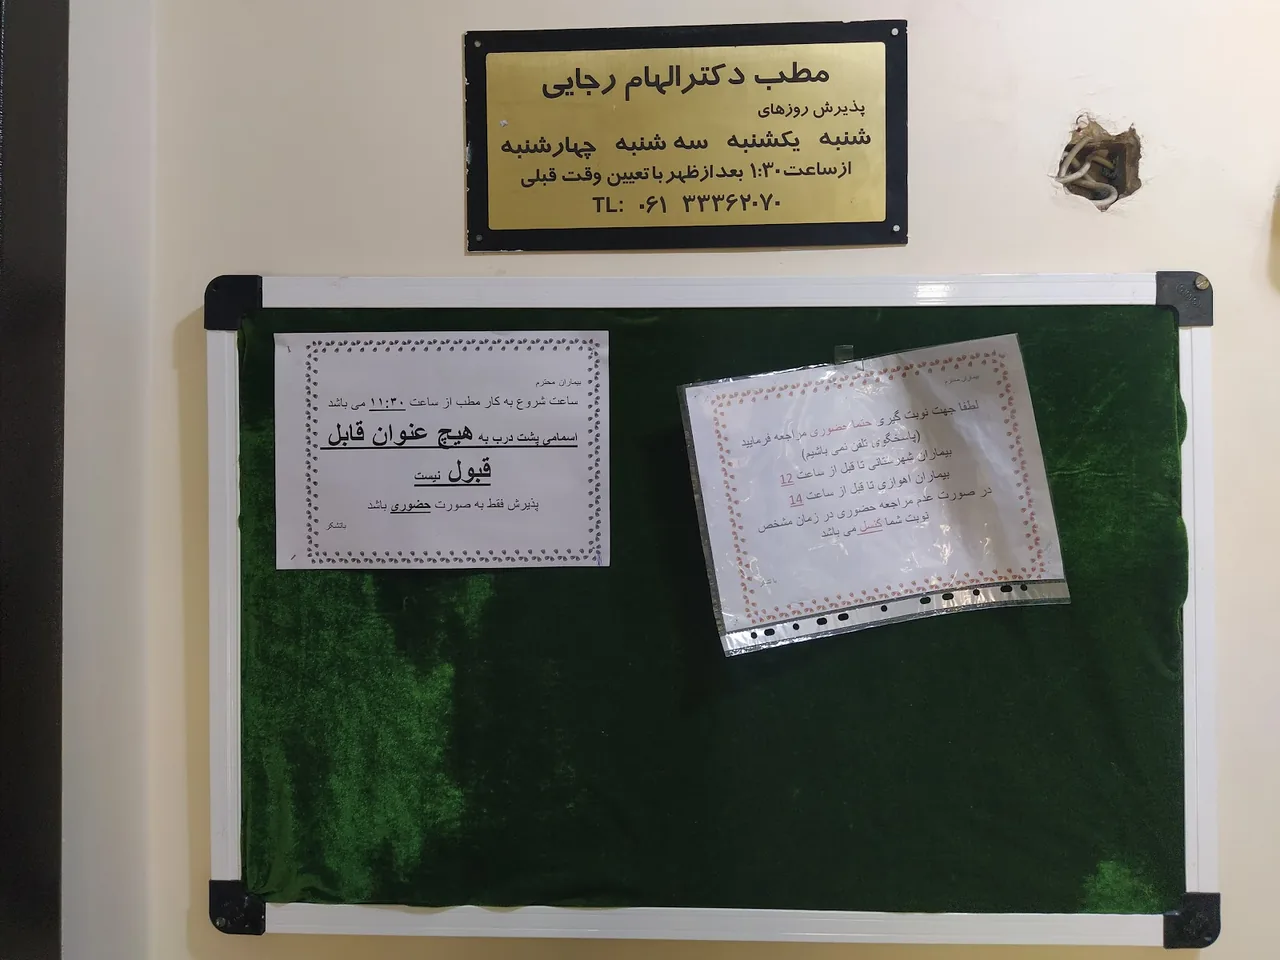 مطب دکتر الهام رجایی
پذیرش روزهای
شنبه یکشنبه سه شنبه چهارشنبه
از ساعت ۱:۳۰ بعد از ظهر با تعیین وقت قبلی
TL: ۰۶۱ ۳۳۳۶۲۰۷۰
بیماران محترم
ساعت شروع به کار مطب از ساعت ۱۱:۳۰ می باشد
اسمامی پشت درب به هیچ عنوان قابل
قبول نیست
پذیرش فقط به صورت حضوری باشد
باتشکر
بیماران محترم
لطفا جهت نوبت گیری حتما حضوری مراجعه فرمایید
(پاسخگوی تلفن نمی باشیم)
بیماران شهرستانی تا قبل از ساعت 12
بیماران اهوازی تا قبل از ساعت 14
در صورت عدم مراجعه حضوری در زمان مشخص
نوبت شما کنسل می باشد